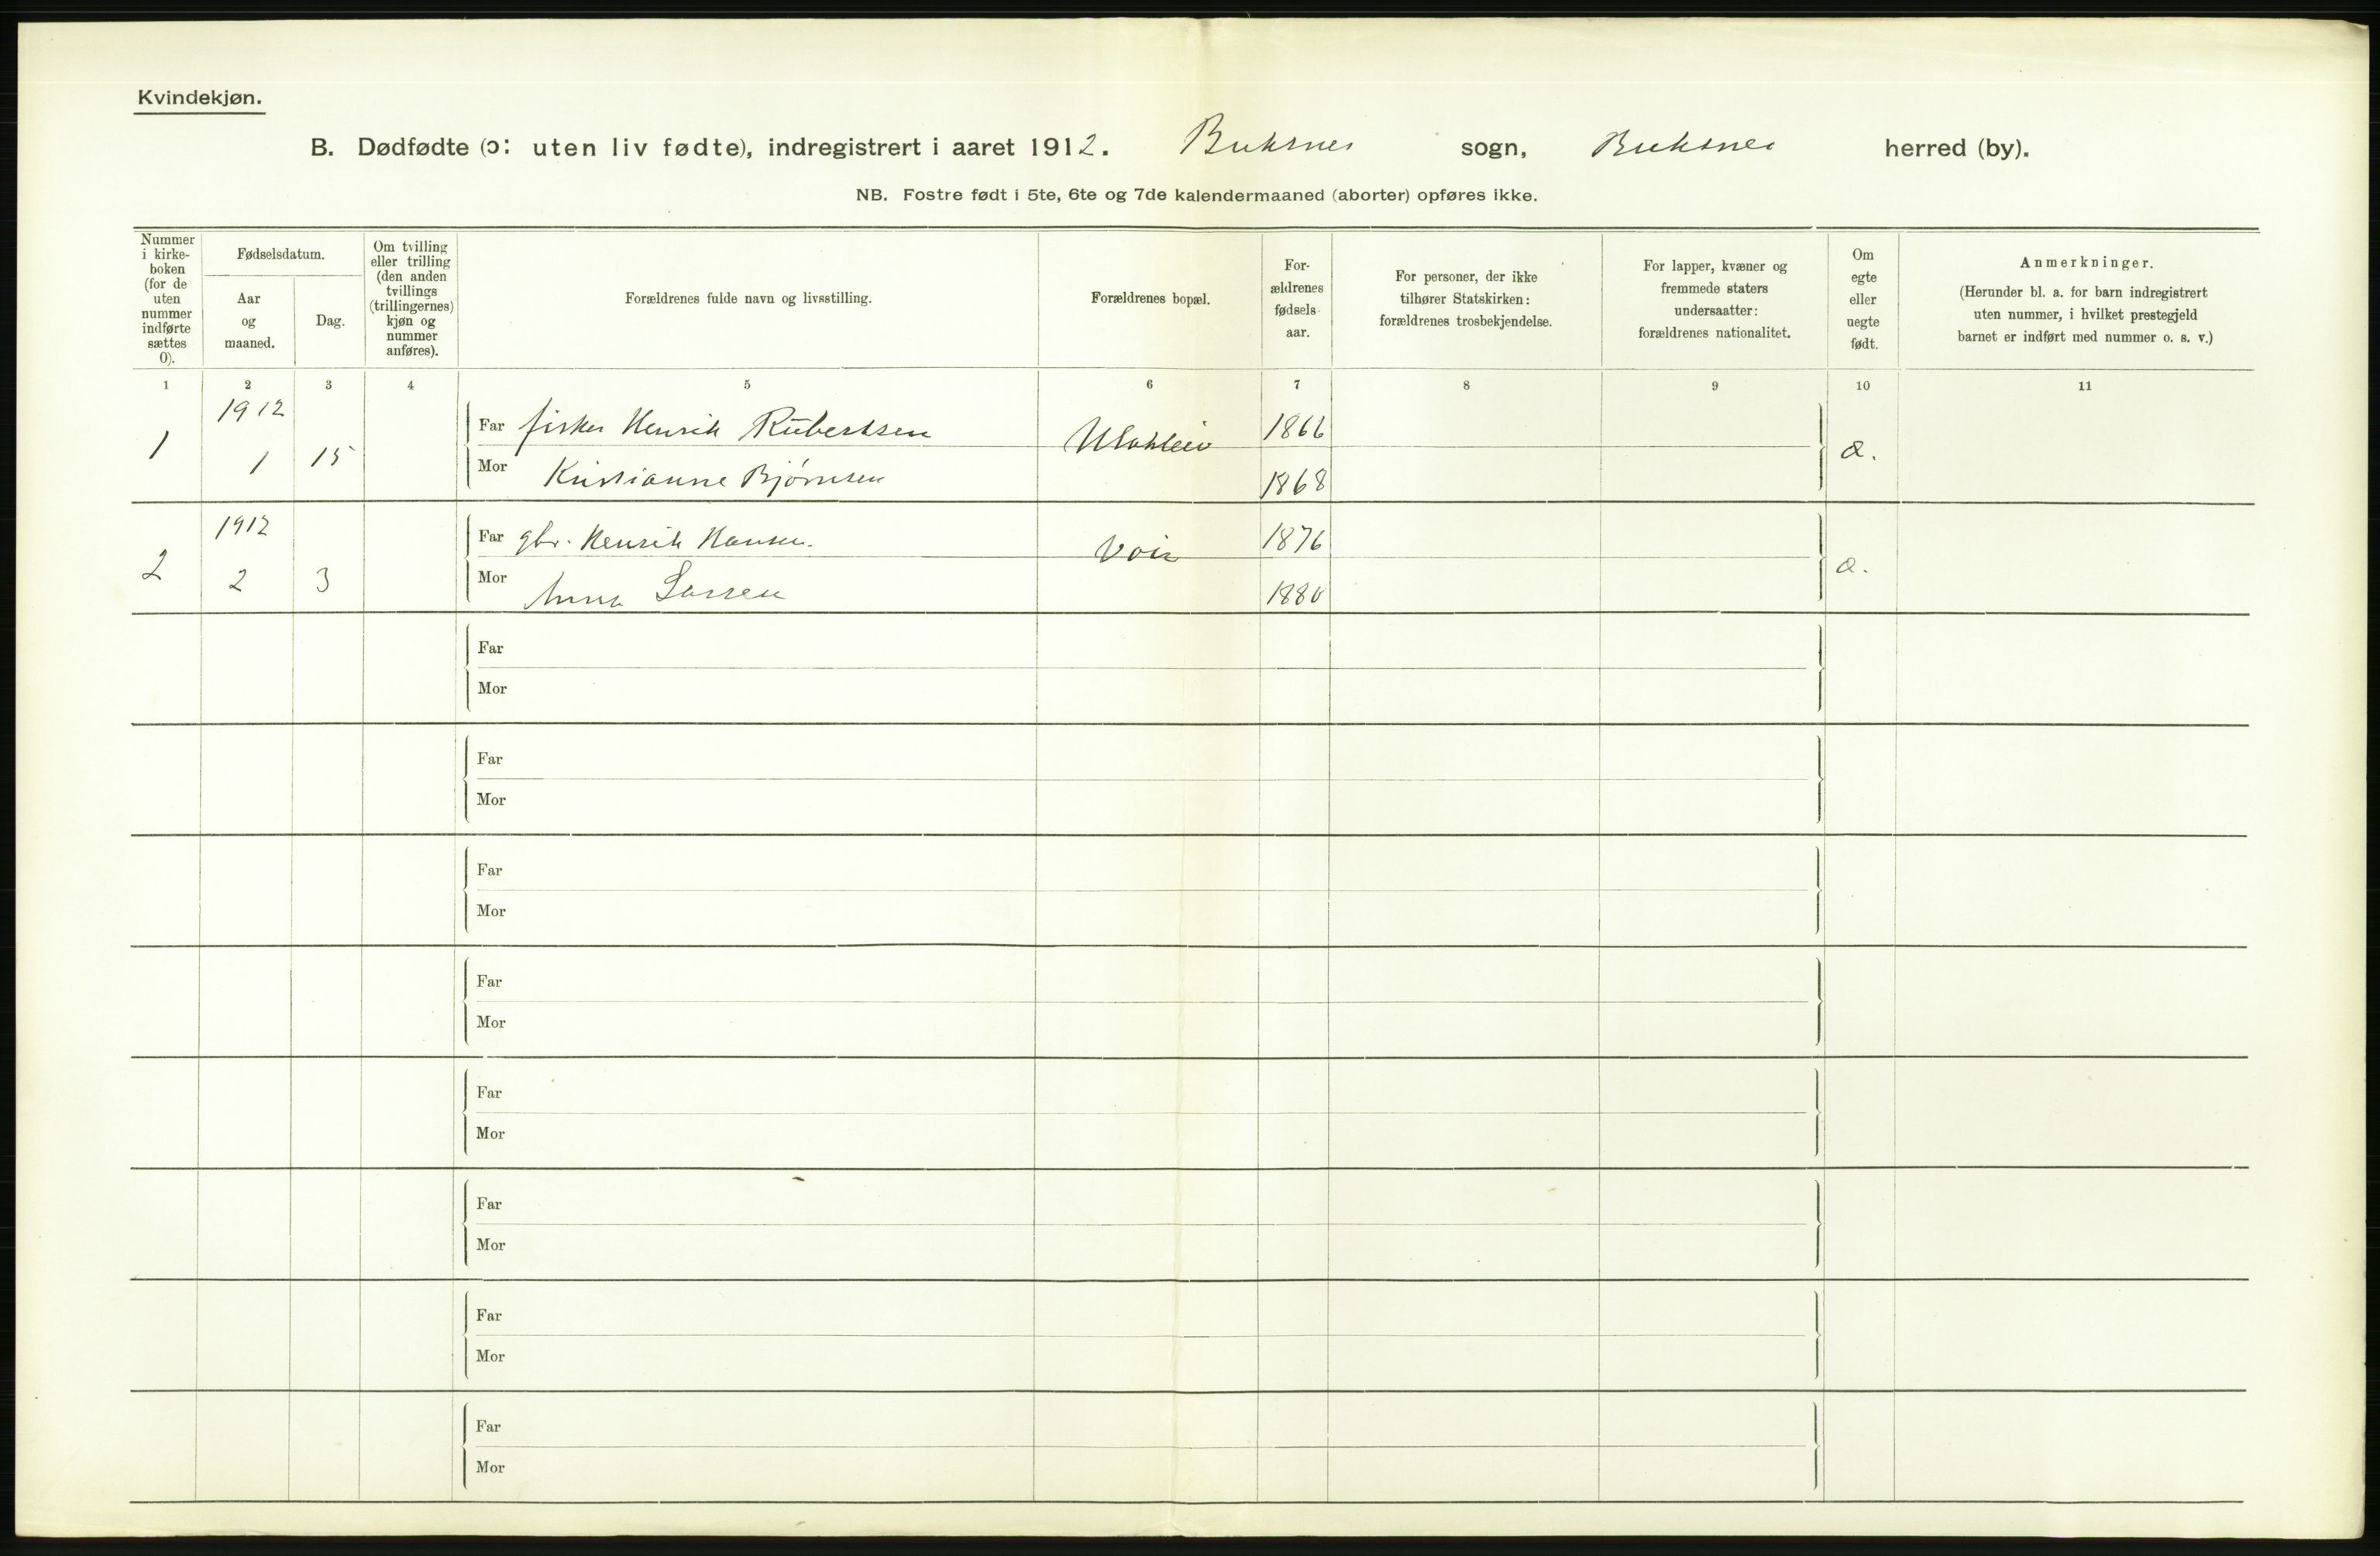 Kvindekjøn.
B. Dødfødte (ɔ: uten liv fødte), indregistrert i aaret 1912. Buksnes sogn, Buksnes herred (by).
NB. Fostre født i 5te, 6te og 7de kalendermaaned (aborter) opføres ikke.
Nummer i kirke- boken (for de uten nummer indførte sættes 0).
Fødselsdatum.
Aar og maaned.
Dag.
Om tvilling eller trilling (den anden tvillings (trillingernes) kjøn og nummer anføres).
Forældrenes fulde navn og livsstilling.
Forældrenes bopæl.
For- ældrenes fødsels- aar.
For personer, der ikke tilhører Statskirken: forældrenes trosbekjendelse.
For lapper, kvæner og fremmede staters undersaatter: forældrenes nationalitet.
Om egte eller uegte født.
Anmerkninger.
(Herunder bl. a. for barn indregistrert uten nummer, i hvilket prestegjeld barnet er indført med nummer o. s. v.)
1 2 3 4 5 6 7 8 9 10 11
1912
Far fisker Henrik Rubertsen 1866
1 1 15
Mor Kristianne Bjørnsen 1868
1912
Far gbr. Henrik Hansen. 1876
2 2 3
Mor Anna Larsen 1880
Far
Mor
Far
Mor
Far
Mor
Far
Mor
Far
Mor
Far
Mor
Far
Mor
Far
Mor